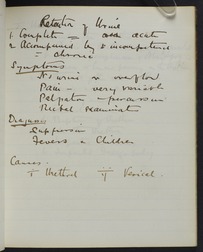 Retention of Urine
1 Complete = acute
2 Accompanied by incontinence
= chronic
Symptoms
No urine or overflow
Pain - very variable
Palpation - percussion
Rectal examination
Diagnosis
Suppression
Fevers & Children
Causes
I Urethral II Vesical